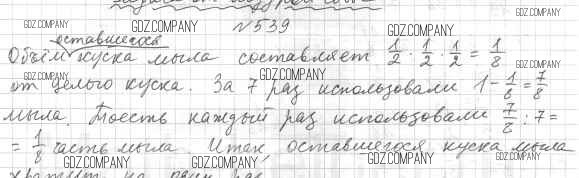 GDZ.COMPANY
№539
GDZ.COMPANY
GDZ.COMPANY
оставшегося
GDZ.COMPANY
Объём куска мыла составляет 1/2 · 1/2 · 1/2 = 1/8
GDZ.COMPANY
GDZ.COMPANY
GDZ.COMPANY
от целого куска. За 7 раз использовали 1 - 1/8 = 7/8
мыла. Тоесть каждый раз использовали 7/8 : 7 =
= 1/8 часть мыла. Итак, оставшегося куска мыла
GDZ.COMPANY
GDZ.COMPANY
GDZ.COMPANY
GDZ.COMPANY
хватит на один раз